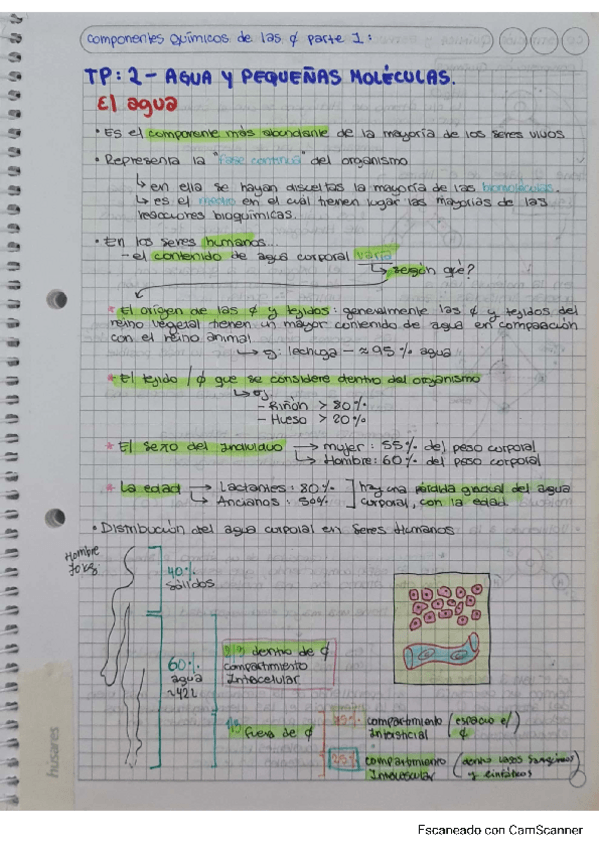 Componentes Químicos de las ȼ parte 1:
TP: 2 - AGUA Y PEQUEÑAS MOLÉCULAS.
El agua
• Es el componente más abundante de la mayoría de los seres vivos
• Representa la "fase continua" del organismo
↳ en ella se hayan disueltas la mayoría de las biomoléculas.
↳ es el medio en el cuál tienen lugar las mayorías de las
reacciones bioquímicas.
• En los seres humanos...
- el contenido de agua corporal varía
↳ según qué?
* El origen de las ȼ y tejidos: generalmente las ȼ y tejidos del
reino vegetal tienen un mayor contenido de agua en comparación
con el reino animal
↳ ej: lechuga - ≈ 95 % agua
* El tejido / ȼ que se considere dentro del organismo
↳ ej
- Riñón > 80 %
- Hueso > 20 %
* El Sexo del Individuo → mujer: 55 % del peso corporal
↳ Hombre: 60 % del peso corporal
* La edad → Lactantes: 80 % ] hay una pérdida gradual del agua
→ Ancianos: 50 % corporal, con la edad.
• Distribución del agua corporal en Seres Humanos:
Hombre
70 kg
40 %
sólidos
60 %
agua
~42L
2/3 dentro de ȼ
compartimiento
Intracelular
1/3
fuera de ȼ
75 % compartimiento (espacio e/)
Intersticial ȼ
25 % compartimiento (dentro vasos sanguíneos
Intravascular y linfáticos)
husares
Escaneado con CamScanner